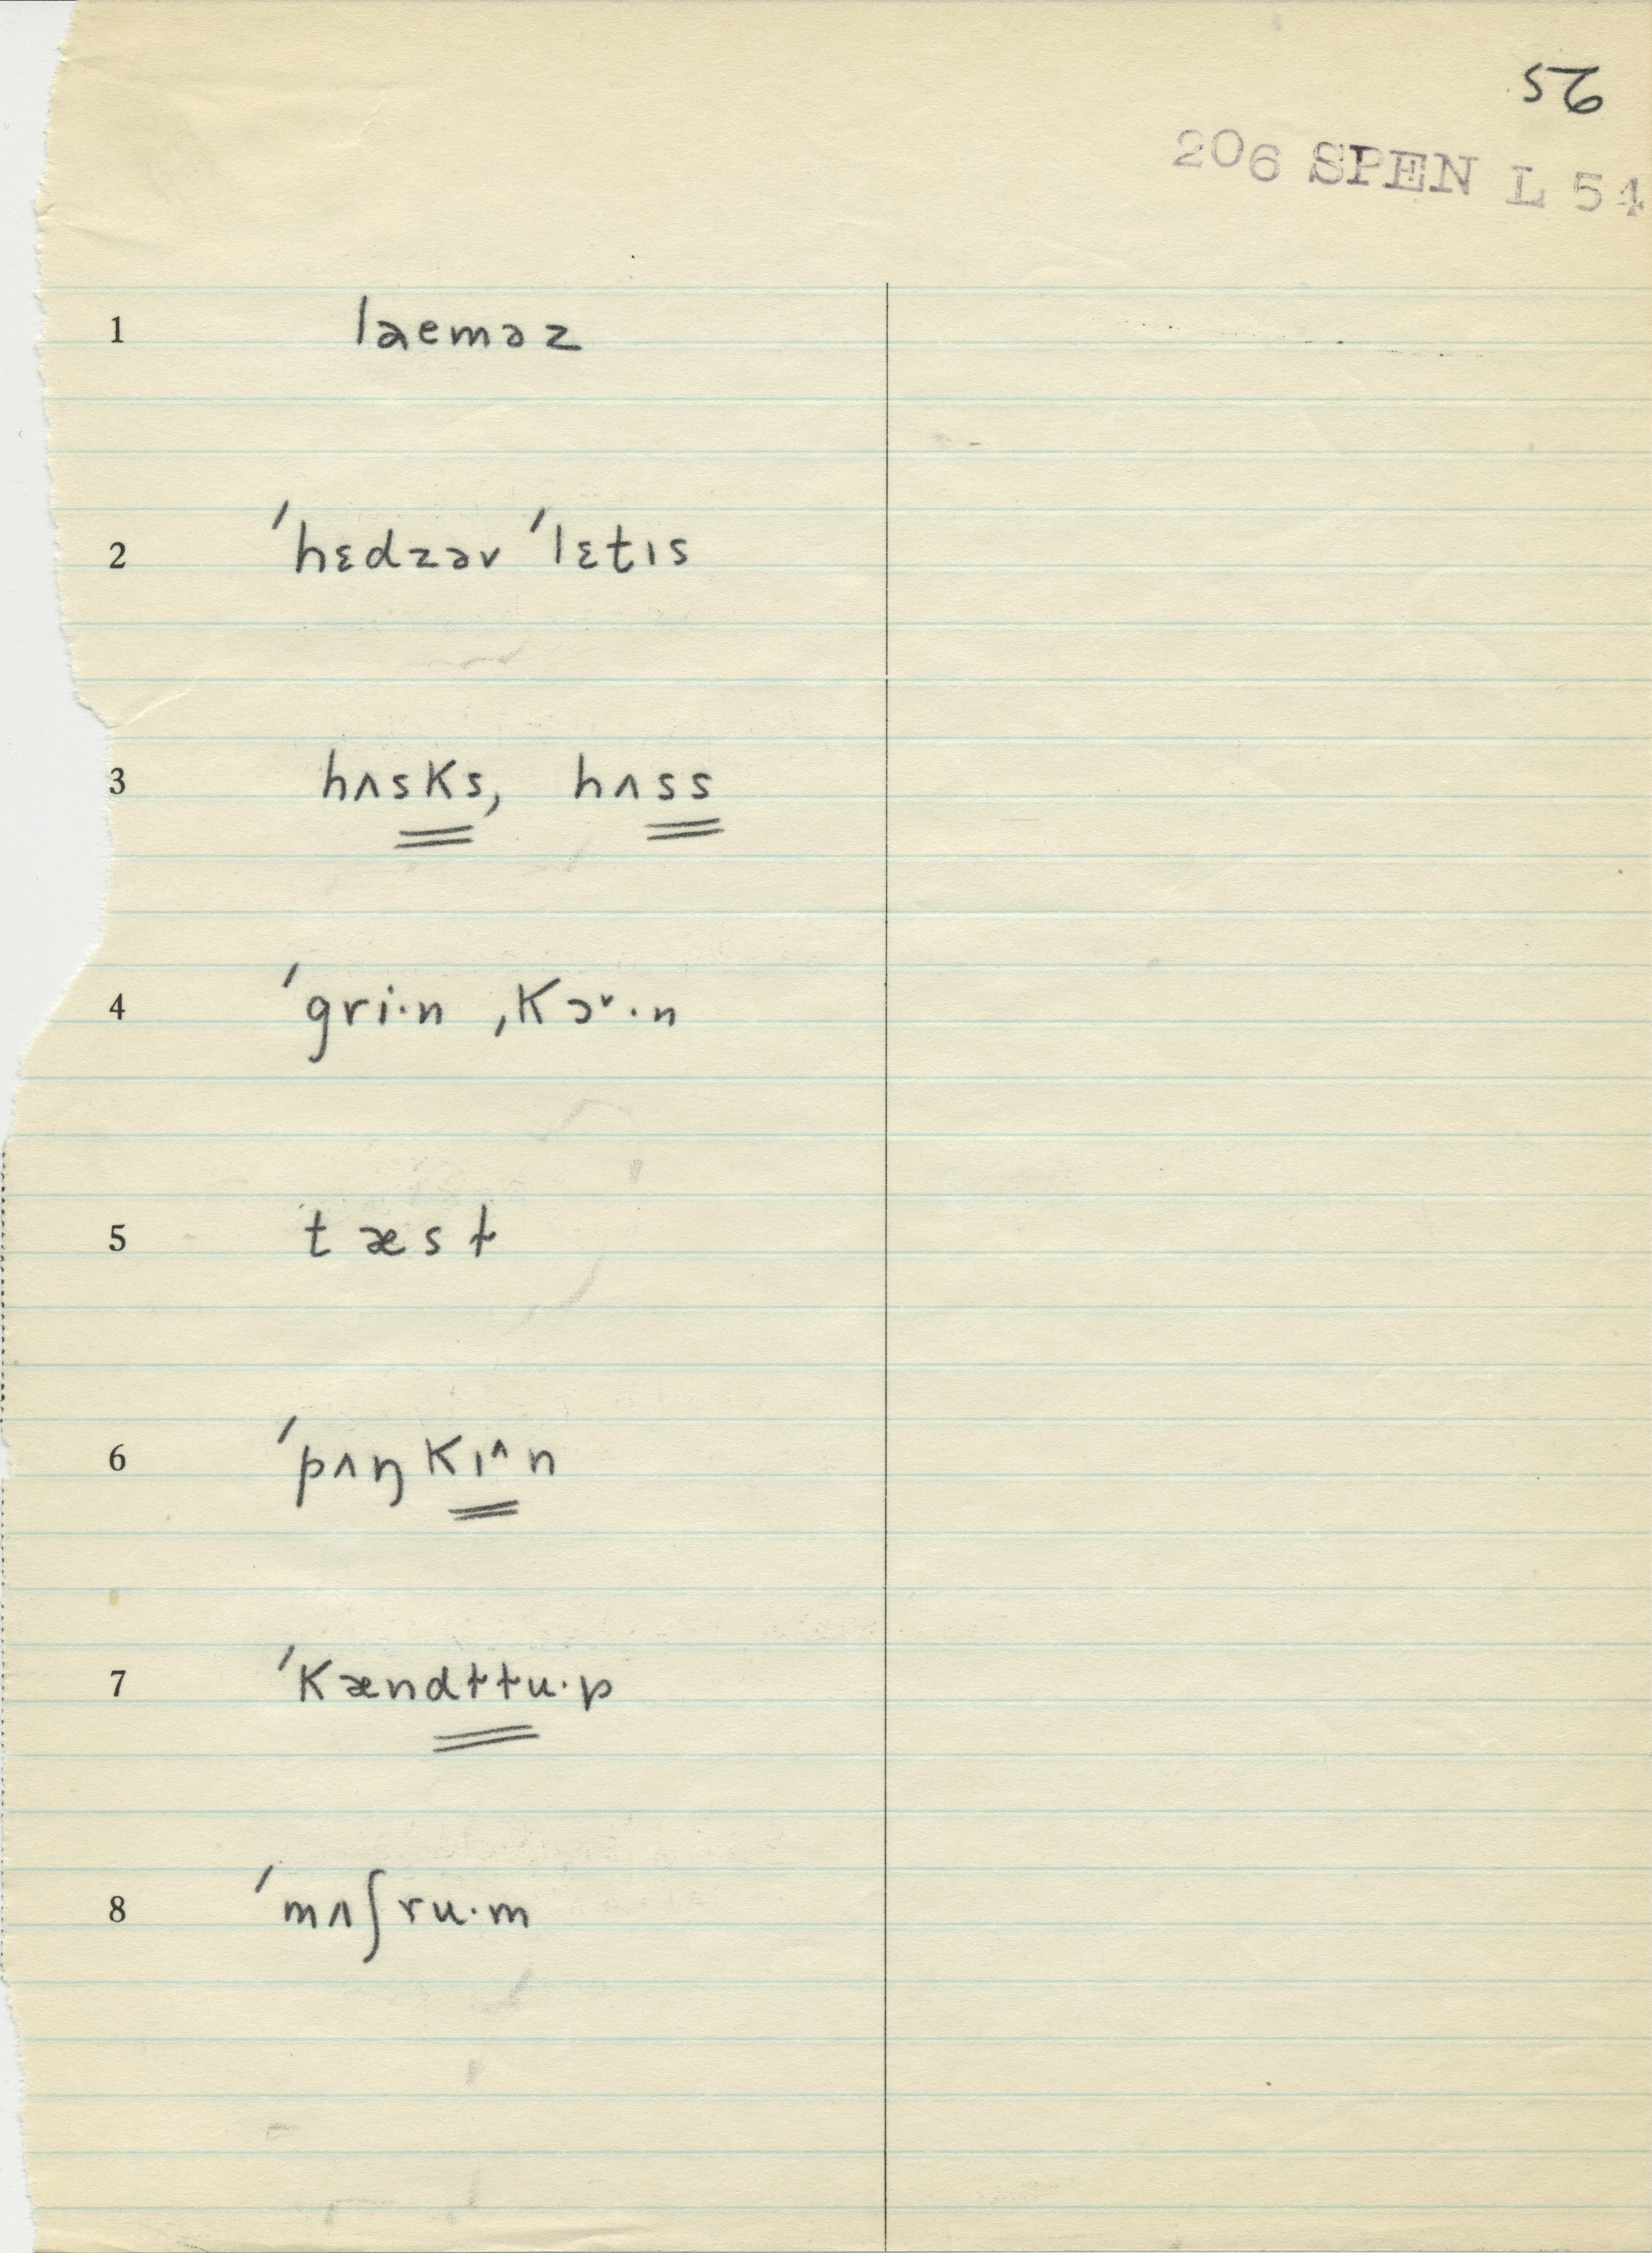 56
206 SPEN L 54
1 laeməz
2 ˈhɛdzəv ˈlɛtɪs
3 hʌsks, hʌss
4 ˈgri·n ˌkɔ˅·n
5 tæsɫ
6 ˈpʌŋkɪ^n
7 ˈkændɫɫu·p
8 ˈmʌʃru·m